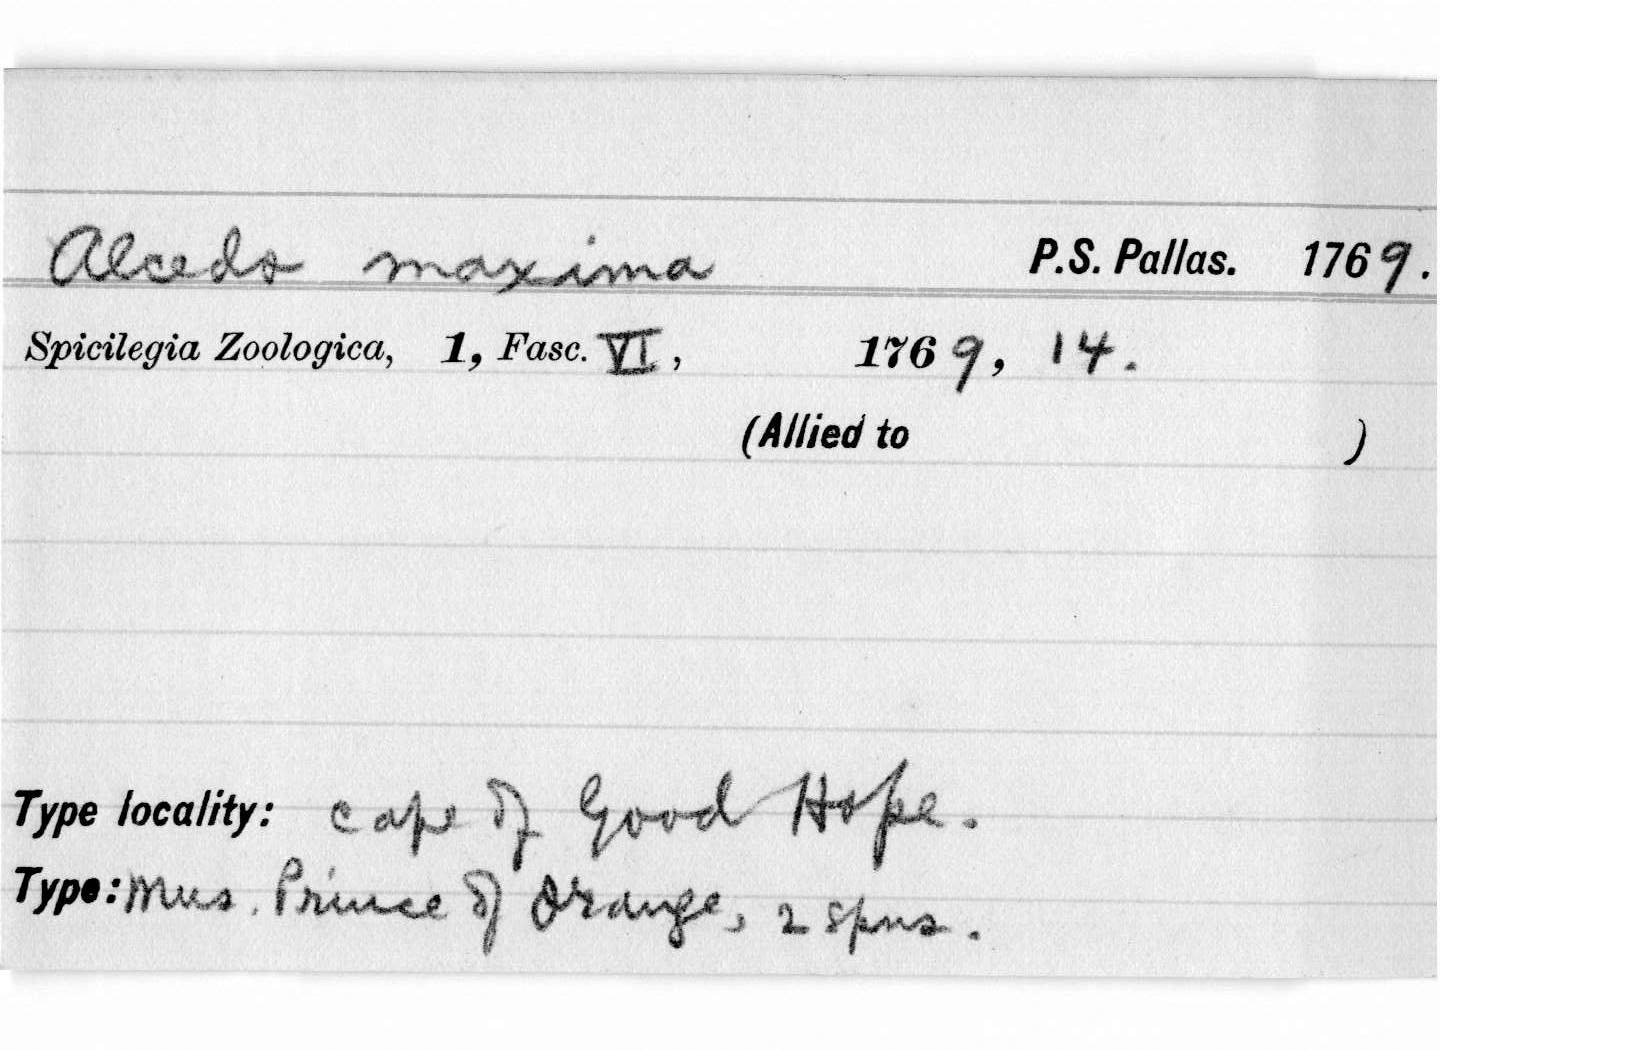 Alcedo maxima P.S. Pallas. 1769.
Spicilegia Zoologica, 1, Fasc. VI, 1769, 14.
(Allied to )
Type locality: Cape of Good Hope.
Type: Mus. Prince of Orange, 2 spns.